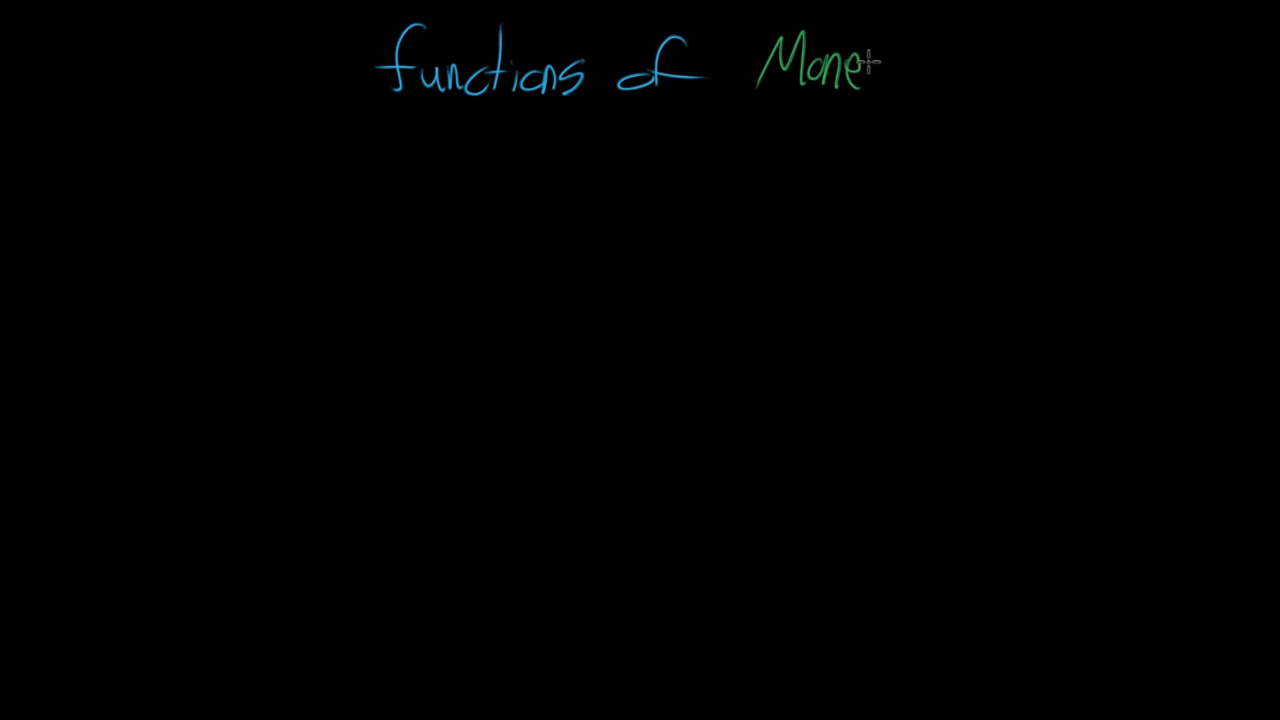 functions of Mone